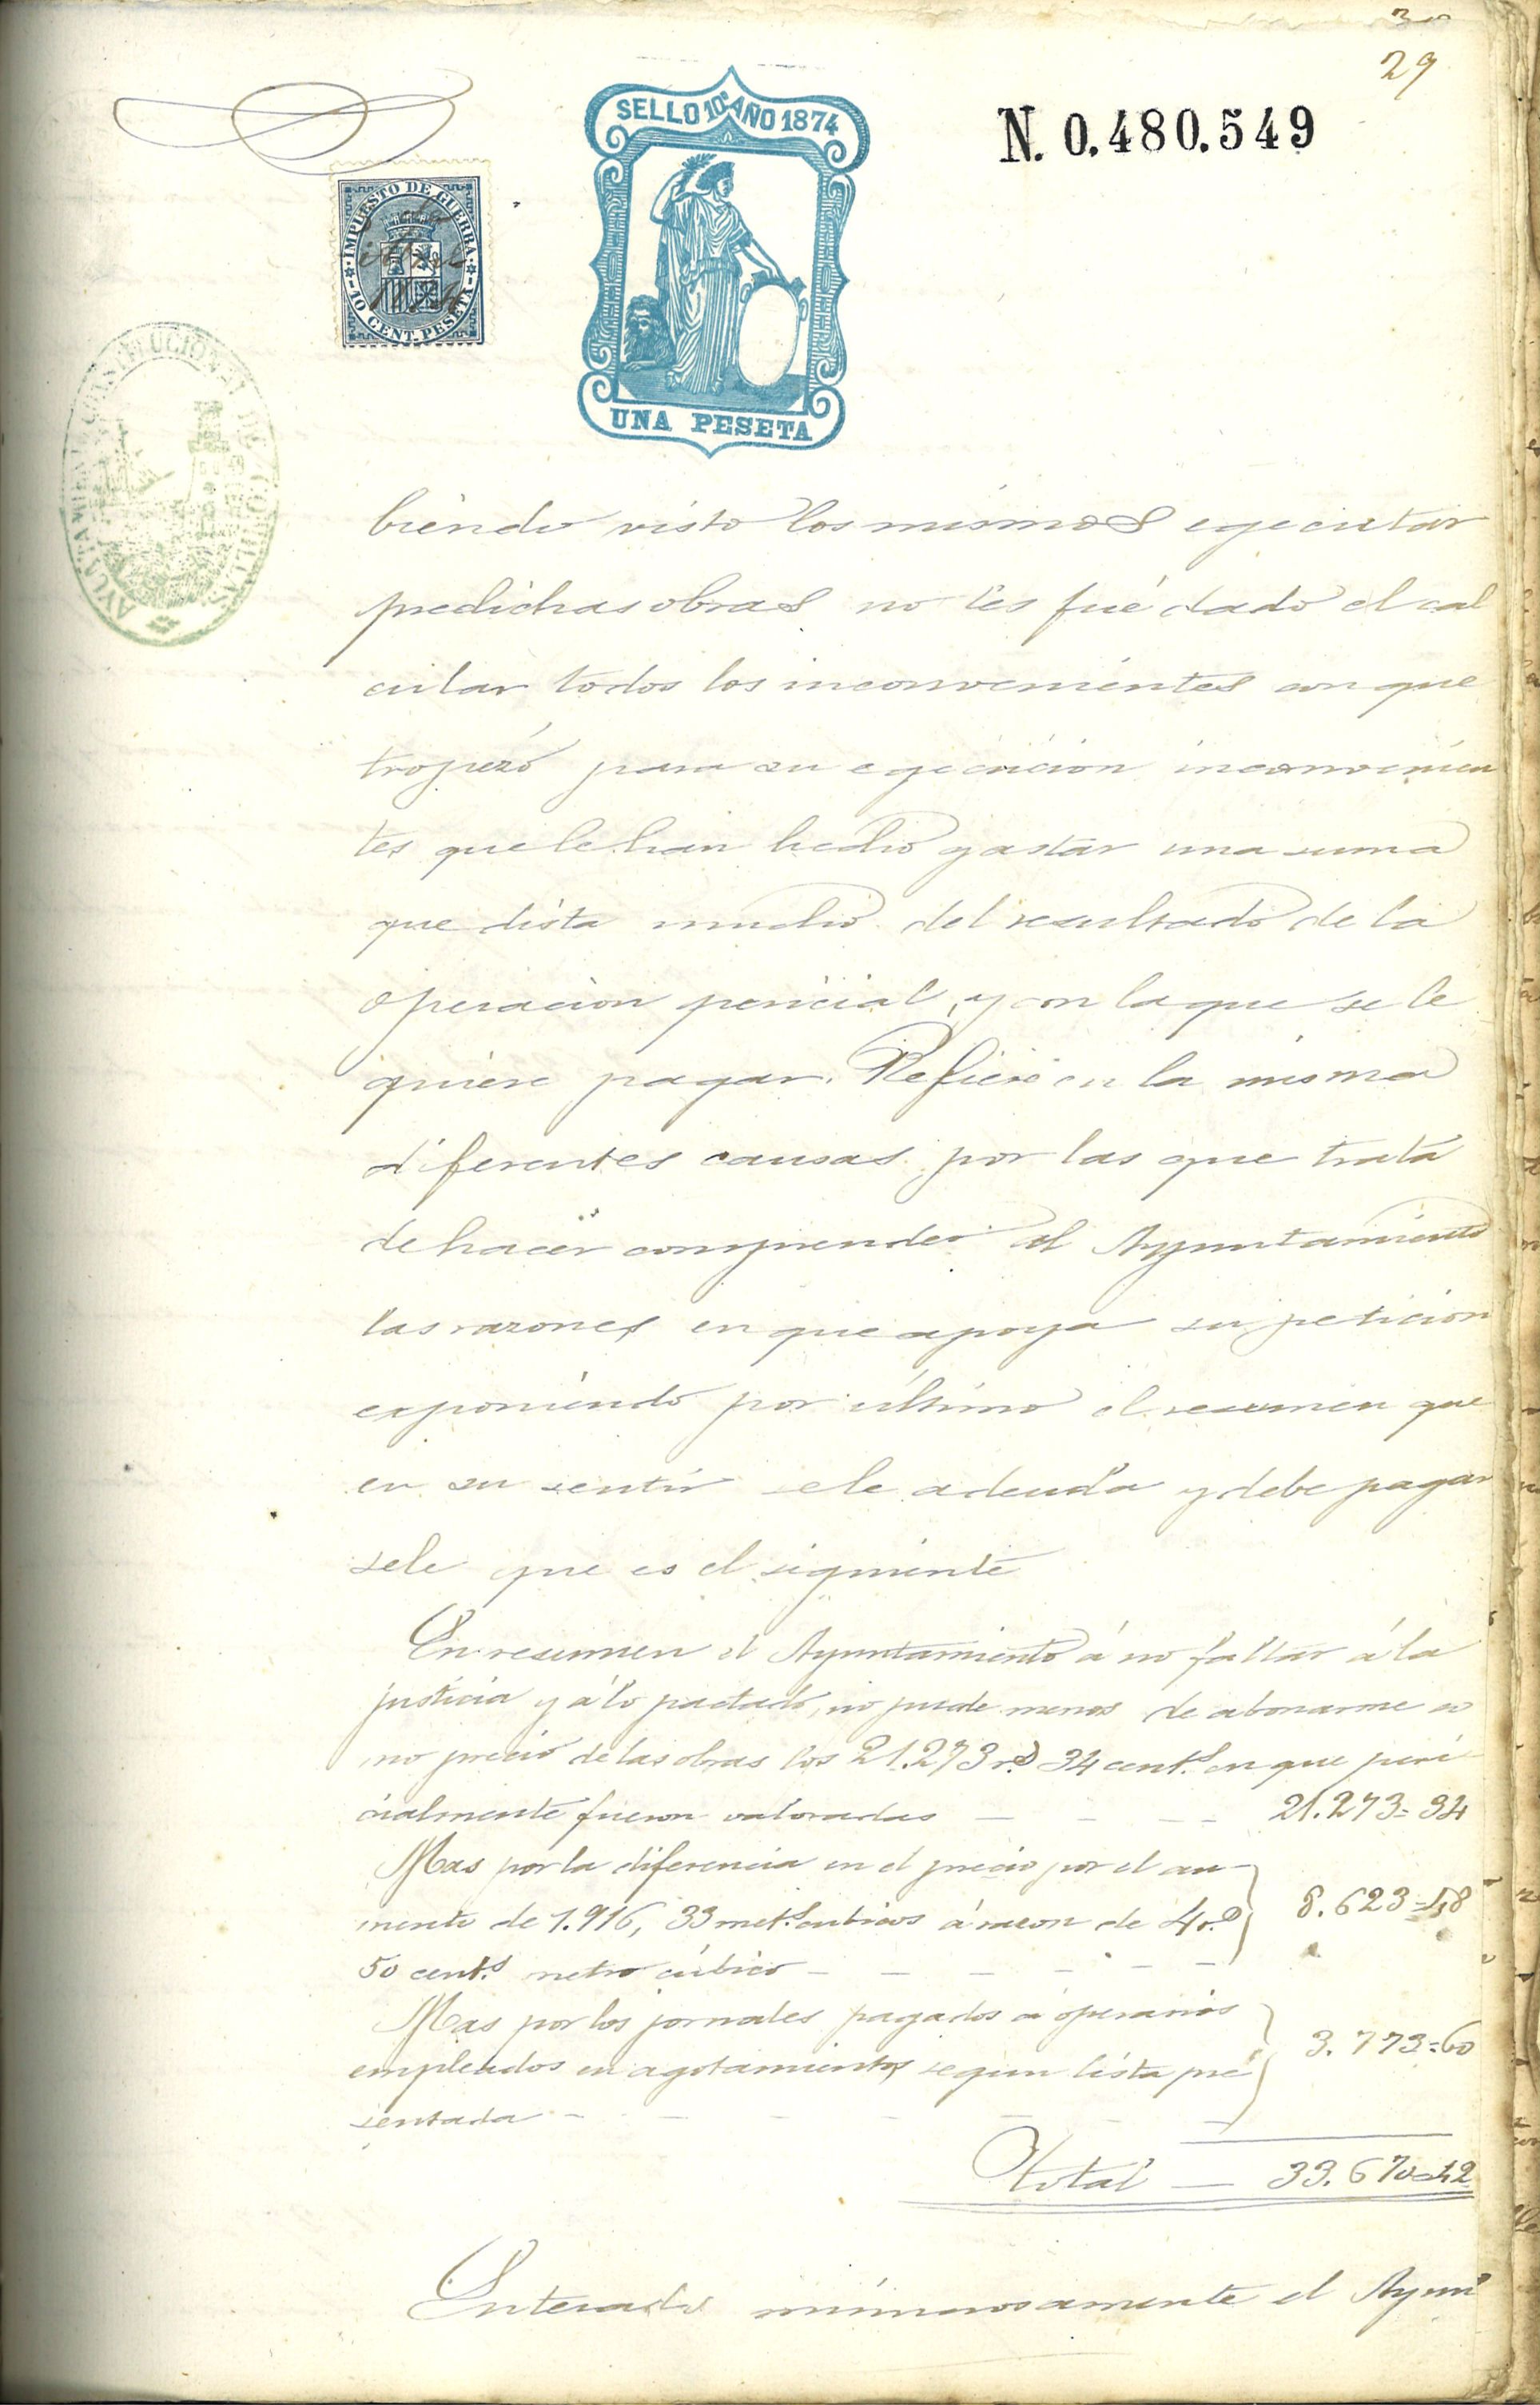 30
29
SELLO 10º AÑO 1874
N. 0.480.549
IMPUESTO DE GUERRA
de
Abril
1874
10 CENT. PESETA
UNA PESETA
AYUNTAMIENTO CONSTITUCIONAL DE COMILLAS
biendo visto los mismos egecutar
predichas obras no les fué dado el cal
cular todos los inconvenientes con que
tropezó para su egecucion inconvenien
tes que le han hecho gastar una suma
que dista mucho del resultado de la
operacion pericial, y con la que se le
quiere pagar. Refiere en la misma
diferentes causas por las que trata
de hacer comprender al Ayuntamiento
las razones en que apoya su peticion
esponiendo por último el resumen que
en su sentir se le adeuda y debe pagar
sele que es el siguiente
En resumen el Ayuntamiento á no faltar á la
justicia y á lo pactado, no puede menos de abonarme co
mo precio de las obras los 21.273 rs 34 cents en que peri
cialmente fueron valoradas — — — — 21.273=34
Mas por la diferencia en el precio por el au-
mento de 1.916, 33 mets cubicos á razon de 4 rs 8.623=48
50 cents metro cúbico — — — — — —
Mas por los jornales pagados á operarios
empleados en agotamientos segun lista pre 3.773=60
sentada — — — — — —
Total — 33.670=42
Enterado minuciosamente el Ayun